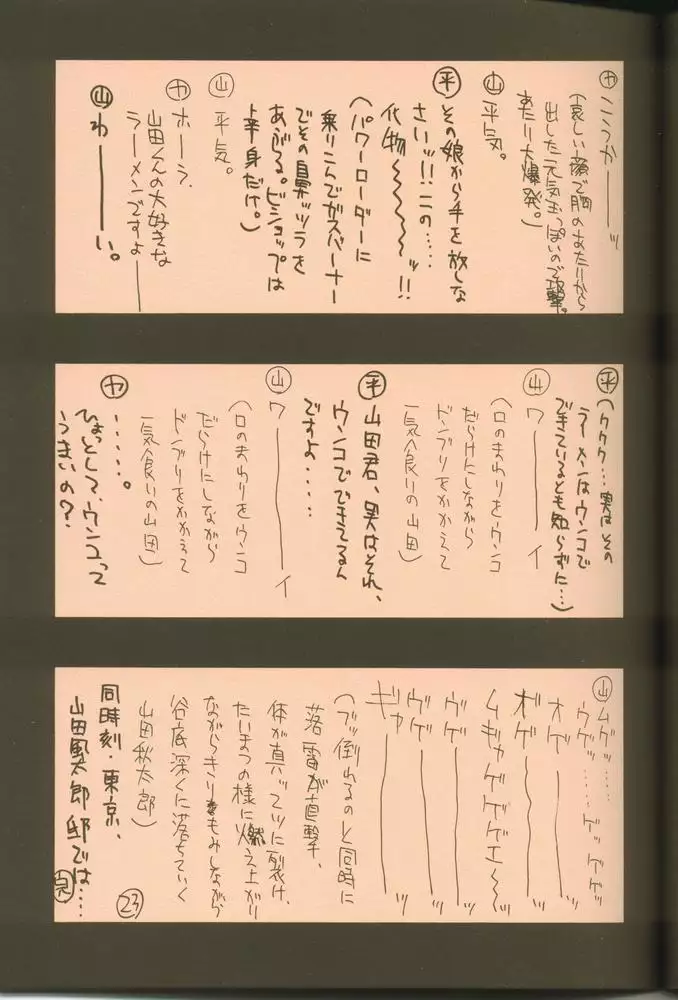 ヤ
こうかーーッ
(哀しい顔で胸のあたりから
出した元気玉っぽいので攻撃。
あたり大爆発。)
山
平気。
平
その娘から手を放しな
さいッ!!この……
化物〜〜〜〜ッ!!
(パワーローダーに
乗りこんでガスバーナー
でその鼻ッツラを
あぶる。ビショップは
上半身だけ。)
山
平気。
ヤ
ホーラ、
山田くんの大好きな
ラーメンですよ――
山
わーーい。
平
(ククク…実はその
ラーメンはウンコで
できているとも知らずに…)
山
ワーーイ
(口のまわりをウンコ
だらけにしながら
ドンブリをかかえて
一気食いの山田)
平
山田君、実はそれ、
ウンコでできてるん
ですよ……
山
ワーーイ
(口のまわりをウンコ
だらけにしながら
ドンブリをかかえて
一気食いの山田)
ヤ
……。
ひょっとして、ウンコって
うまいの?
山
ムゲッ……
ウゲッ……ゲッゲゲッ
オゲーーッ
オゲーーッ
ムギャゲゲゲエ〜〜ッ
ウゲーーッ
ウゲーーッ
ギャーーッ
(ブッ倒れるのと同時に
落雷が直撃、
体が真ッ二ツに裂け、
たいまつの様に燃え上がり
ながらきりもみしながら
谷底深くに落ちていく
山田秋太郎)
同時刻・東京、
山田風太郎邸では……
完
23